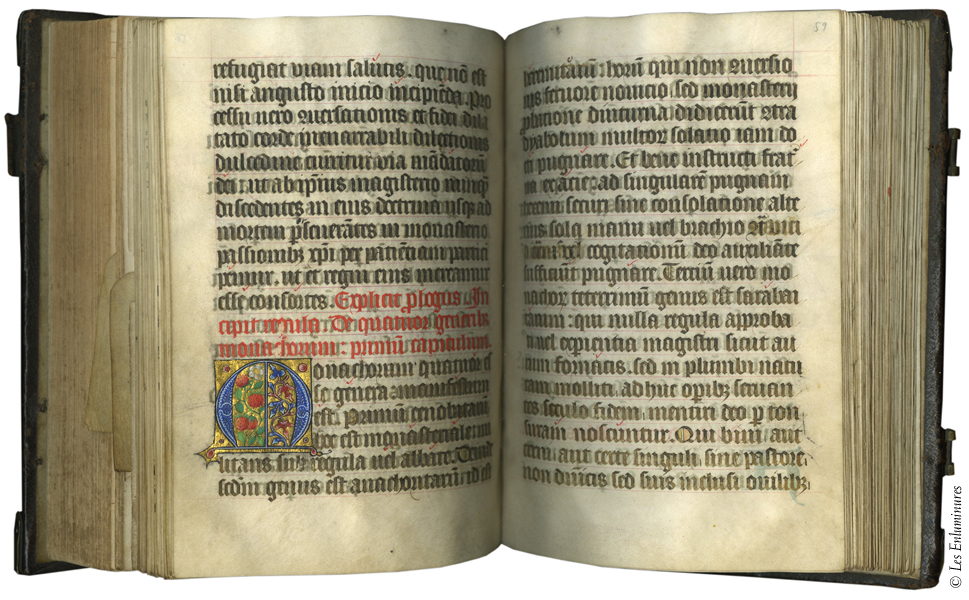 refugiat viam salutis. que nō est
nisi angusto inicio incipiēda. Pro
cessu vero ɔversationis et fidei dila
tato corde inenarrabili dilectionis
dulcedine curritur via mādatorū
dei: ut ab ipius magisterio nunqʒ
discedentes in eius doctrina usqʒ ad
mortem pseverātes in monasterio
passionibus xpi per patientiam partici
pemur. ut et regni eius mereamur
esse consortes. Explicit plogus In
cipit regula De quatuor generibʒ
monachorum: primū capitulum.
Monachorum quatuor es
se genera: manifestum
est. Primum cenobitarū
hoc est monasteriale: mi
litans sub regula vel abbate. Deind
secūdm genus est anachoritarū: id est
59
heremitarū: horum qui non ɔversio
nis fervore novicio. sed monasterii
pbatione diuturna didicerūt ɔtra
dyabolum multor solatio iam do
cti pugnare. Et bene instructi frat
na ex acie: ad singularē pugnam
heremi securi: sine consolatione alte
rius. sola manu vel brachio
vel cogitationum deo auxiliāte
sufficiūt pugnare. Tertiū vero mo
nachor teterrimū genus est sarabai
tarum: qui nulla regula approba
ti vel experientia magistri sicut au
rum fornacis. sed in plumbi natu
ram molliti. adhuc opibʒ servan
tes seculo fidem. mentiri deo p ton
suram noscuntur. Qui bini aut
terni aut certe singuli sine pastore
non dnicis sed suis inclusi ovilibʒ
© Les Enluminures